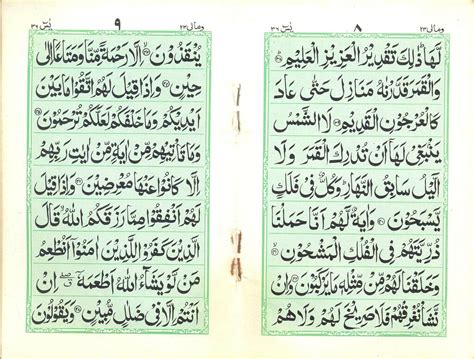 ومالی ۲۳ ۸ یٰسٓ ۳۶
لَّهَا ذٰلِكَ تَقْدِيْرُ الْعَزِيْزِ الْعَلِيْمِ ﴿۳۸﴾
وَالْقَمَرَ قَدَّرْنٰهُ مَنَازِلَ حَتّٰى عَادَ
كَالْعُرْجُوْنِ الْقَدِيْمِ ﴿۳۹﴾ لَا الشَّمْسُ
يَنْۢبَغِيْ لَهَآ اَنْ تُدْرِكَ الْقَمَرَ وَلَا
الَّيْلُ سَابِقُ النَّهَارِ وَكُلٌّ فِيْ فَلَكٍ
يَّسْبَحُوْنَ ﴿۴۰﴾ وَاٰيَةٌ لَّهُمْ اَنَّا حَمَلْنَا
ذُرِّيَّتَهُمْ فِي الْفُلْكِ الْمَشْحُوْنِ ﴿۴۱﴾
وَخَلَقْنَا لَهُمْ مِّنْ مِّثْلِهٖ مَا يَرْكَبُوْنَ ﴿۴۲﴾ وَاِنْ
نَّشَاْ نُغْرِقْهُمْ فَلَا صَرِيْخَ لَهُمْ وَلَا هُمْ
ومالی ۲۳ ۹ یٰسٓ ۳۶
يُنْقَذُوْنَ ﴿۴۳﴾ اِلَّا رَحْمَةً مِّنَّا وَمَتَاعًا اِلٰى
حِيْنٍ ﴿۴۴﴾ وَاِذَا قِيْلَ لَهُمُ اتَّقُوْا مَا بَيْنَ
اَيْدِيْكُمْ وَمَا خَلْفَكُمْ لَعَلَّكُمْ تُرْحَمُوْنَ ﴿۴۵﴾
وَمَا تَاْتِيْهِمْ مِّنْ اٰيَةٍ مِّنْ اٰيٰتِ رَبِّهِمْ
اِلَّا كَانُوْا عَنْهَا مُعْرِضِيْنَ ﴿۴۶﴾ وَاِذَا قِيْلَ
لَهُمْ اَنْفِقُوْا مِمَّا رَزَقَكُمُ اللّٰهُ قَالَ
الَّذِيْنَ كَفَرُوْا لِلَّذِيْنَ اٰمَنُوْٓا اَنُطْعِمُ
مَنْ لَّوْ يَشَآءُ اللّٰهُ اَطْعَمَهٗٓ اِنْ
اَنْتُمْ اِلَّا فِيْ ضَلٰلٍ مُّبِيْنٍ ﴿۴۷﴾ وَيَقُوْلُوْنَ